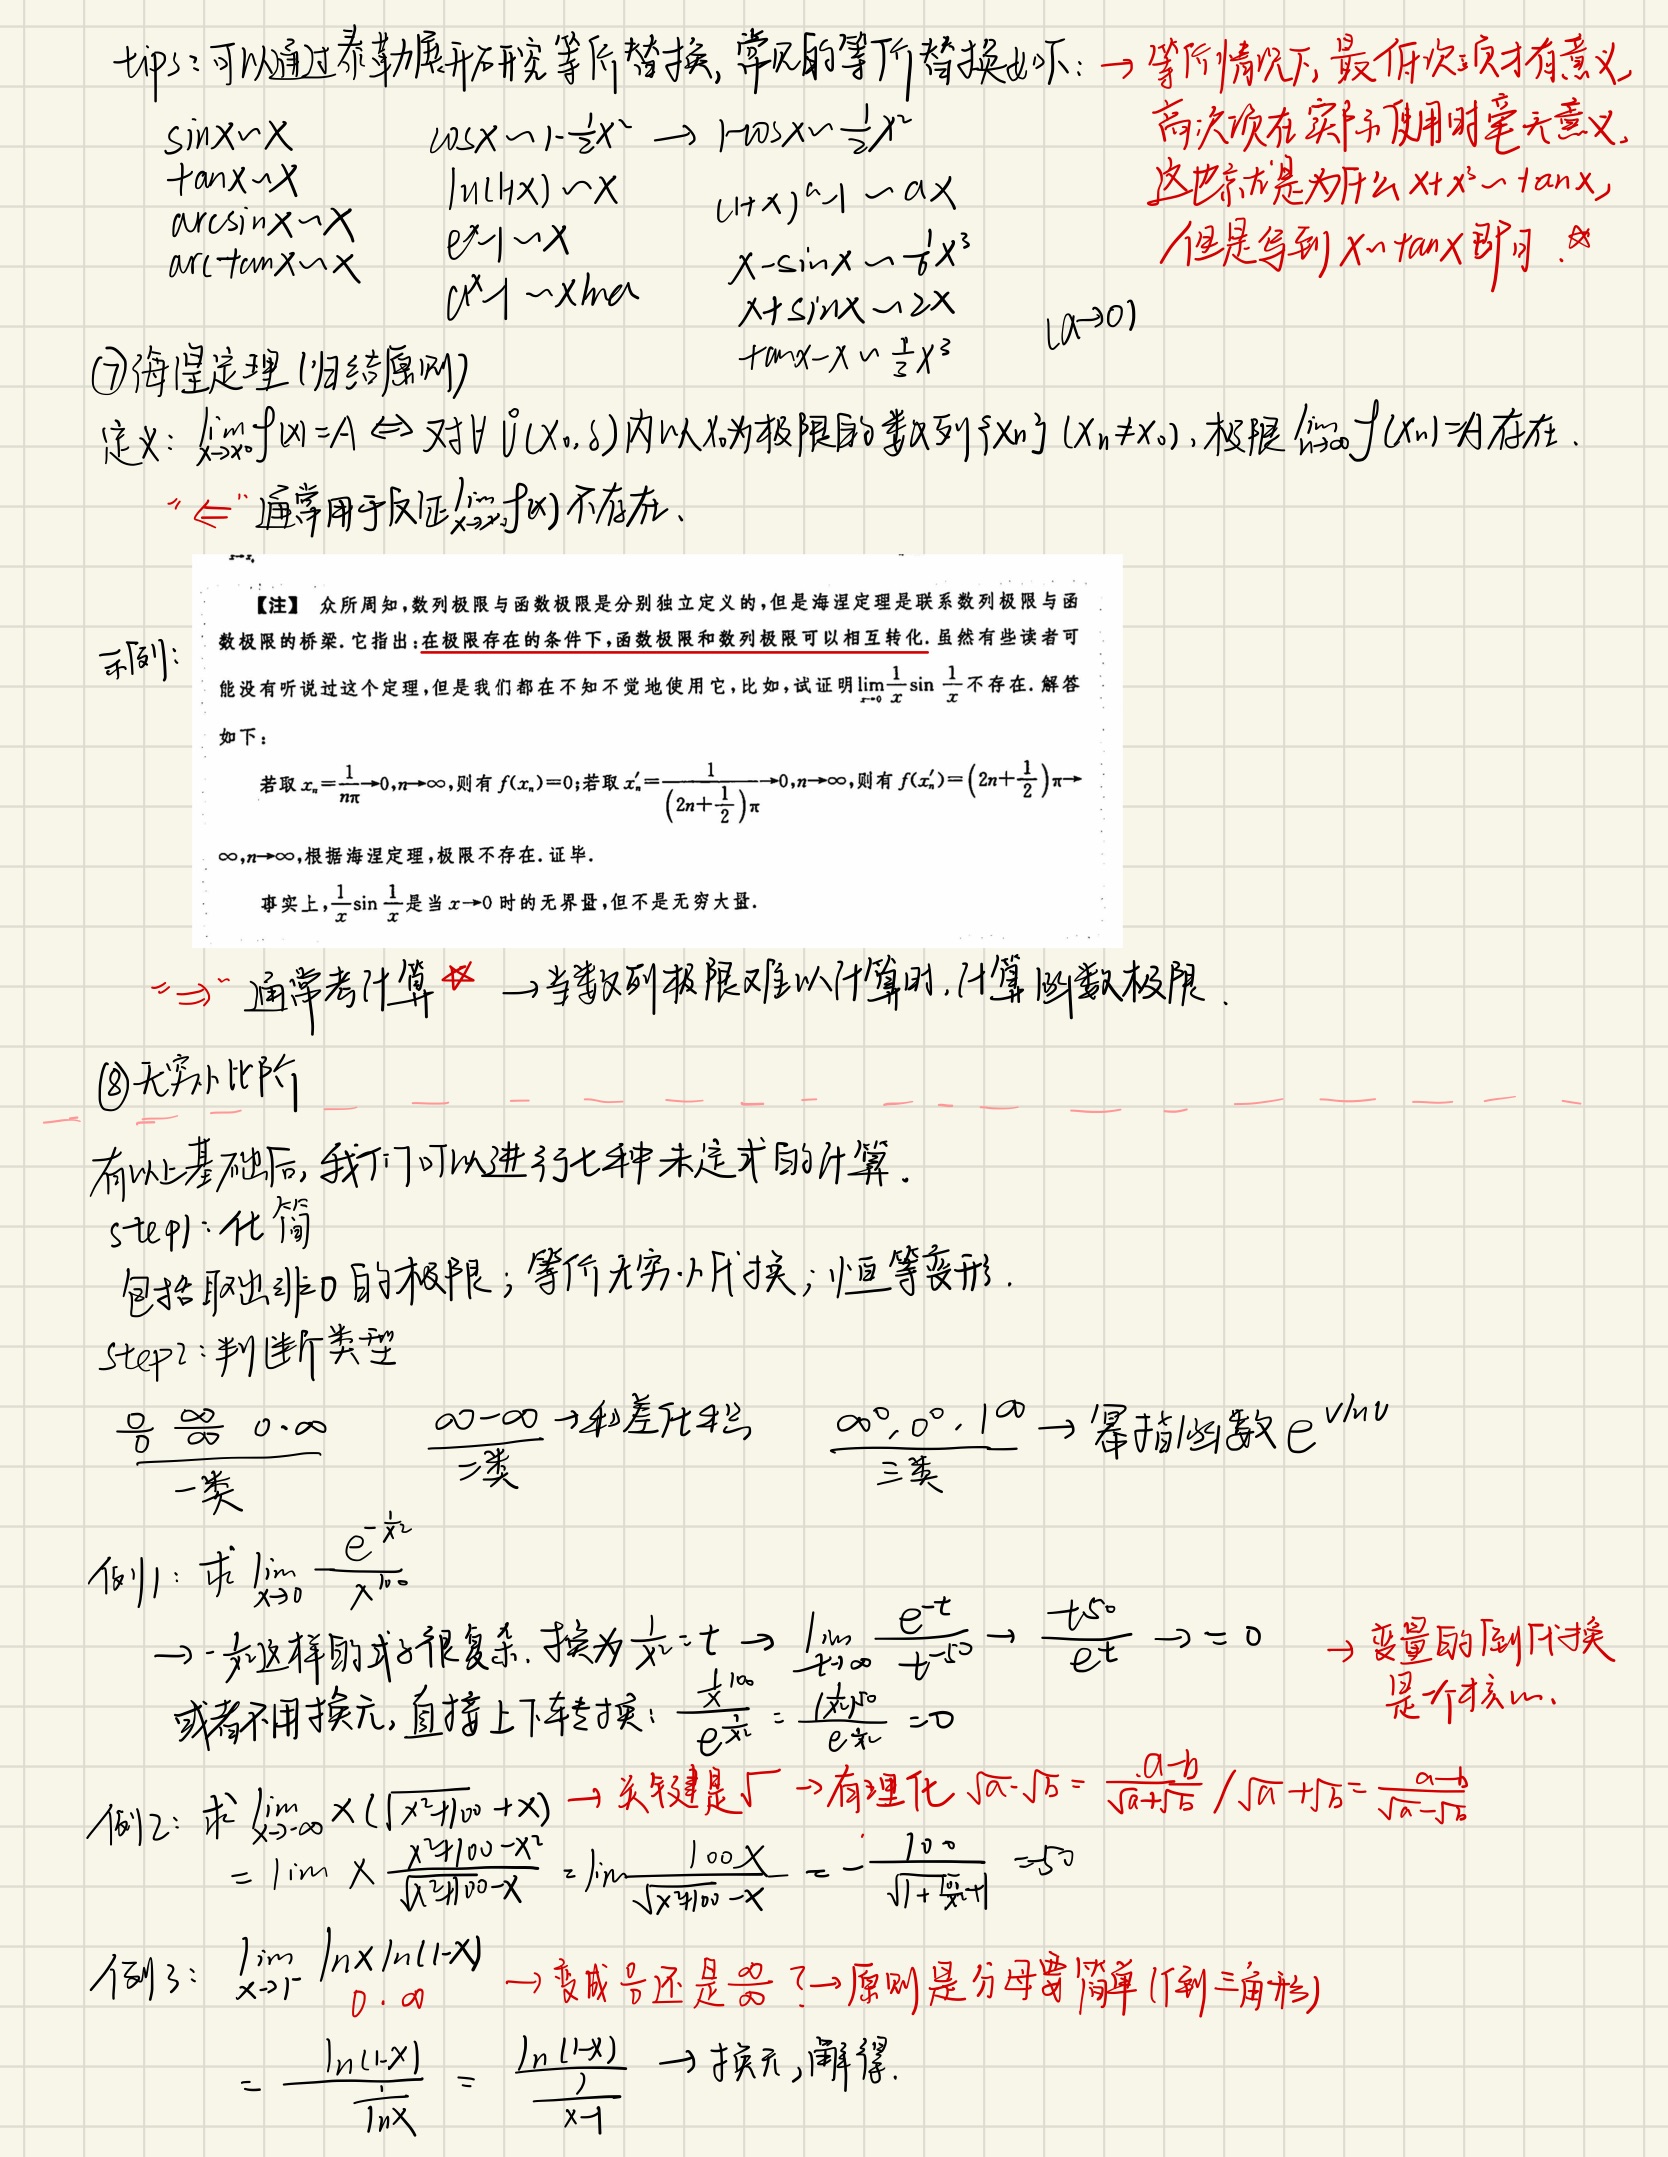 tips：可以通过泰勒展开研究等价替换，常见的等价替换如下：→ 等价情况下，最低次项才有意义，
高次项在实际使用时毫无意义，
这也就是为什么 x+x³~tanx，
但是写到 x~tanx 即可．☆
sinx~x cosx~1-½x² → 1-cosx~½x²
tanx~x ln(1+x)~x (1+x)ᵃ-1~ax
arcsinx~x eˣ-1~x x-sinx~1/6 x³
arctanx~x aˣ-1~xlna x+sinx~2x (a→0)
tanx-x~1/3 x³
⑦海涅定理（归结原则）
定义：lim(x→x₀) f(x)=A ⇔ 对∀ Ů(x₀,δ)内以x₀为极限的数列{xn}（xn≠x₀），极限 lim(n→∞) f(xn)=A存在．
“⇐” 通常用于反证 lim(x→x₀) f(x) 不存在、
示例：
【注】 众所周知，数列极限与函数极限是分别独立定义的，但是海涅定理是联系数列极限与函
数极限的桥梁．它指出：在极限存在的条件下，函数极限和数列极限可以相互转化．虽然有些读者可
能没有听说过这个定理，但是我们都在不知不觉地使用它，比如，试证明 lim(x→0) 1/x sin 1/x 不存在．解答
如下：
若取 xₙ=1/(nπ)→0,n→∞,则有 f(xₙ)=0;若取 xₙ′=1/((2n+1/2)π)→0,n→∞,则有 f(xₙ′)=(2n+1/2)π→
∞,n→∞,根据海涅定理,极限不存在．证毕．
事实上，1/x sin 1/x 是当 x→0 时的无界量，但不是无穷大量．
“⇒” 通常考计算☆ →当数列极限难以计算时，计算函数极限．
⑧无穷小比阶
有以上基础后，我们可以进行七种未定式的计算．
step1：化简
包括取出非0的极限；等价无穷小代换；恒等变形．
step2：判断类型
0/0 ∞/∞ 0·∞ ∞-∞ →和差化积 ∞⁰，0⁰，1^∞ → 幂指函数 e^(vlnu)
一类 二类 三类
例1：求 lim(x→0) e^(-1/x²)/x¹⁰⁰
→ 一般这样的式子很复杂．换为 1/x²=t → lim(t→∞) e^(-t)/t^(-50) → t⁵⁰/eᵗ → = 0 → 变量的倒代换
是一个核心、
或者不用换元，直接上下转换：(1/x)¹⁰⁰/e^(1/x²) = (1/x²)⁵⁰/e^(1/x²) =0
例2：求 lim(x→-∞) x(√(x²+100)+x) → 关键是√ →有理化 √a-√b = (a-b)/(√a+√b) / √a+√b = (a-b)/(√a-√b)
= lim x (x²+100-x²)/(√(x²+100)-x) = lim 100x/(√(x²+100)-x) = -100/(√(1+100/x²)+1) =-50
例3：lim(x→1⁻) lnx ln(1-x) → 变成 0/0 还是 ∞/∞？→原则是分母要简单（倒三角形）
0·∞
= ln(1-x)/(1/lnx) = ln(1-x)/(1/(x-1)) → 换元，解得．